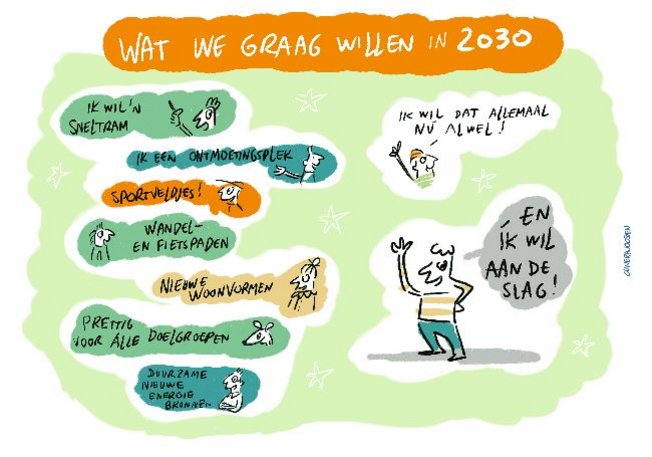 WAT WE GRAAG WILLEN IN 2030
IK WIL 'N
SNELTRAM
IK EEN ONTMOETINGSPLEK
SPORTVELDJES!
WANDEL-
EN FIETSPADEN
NIEUWE
WOONVORMEN
PRETTIG
VOOR ALLE DOELGROEPEN
DUURZAME
NIEUWE
ENERGIE
BRONNEN
IK WIL DAT ALLEMAAL
NÚ AL WEL!
EN
ÍK WIL
AAN DE
SLAG!